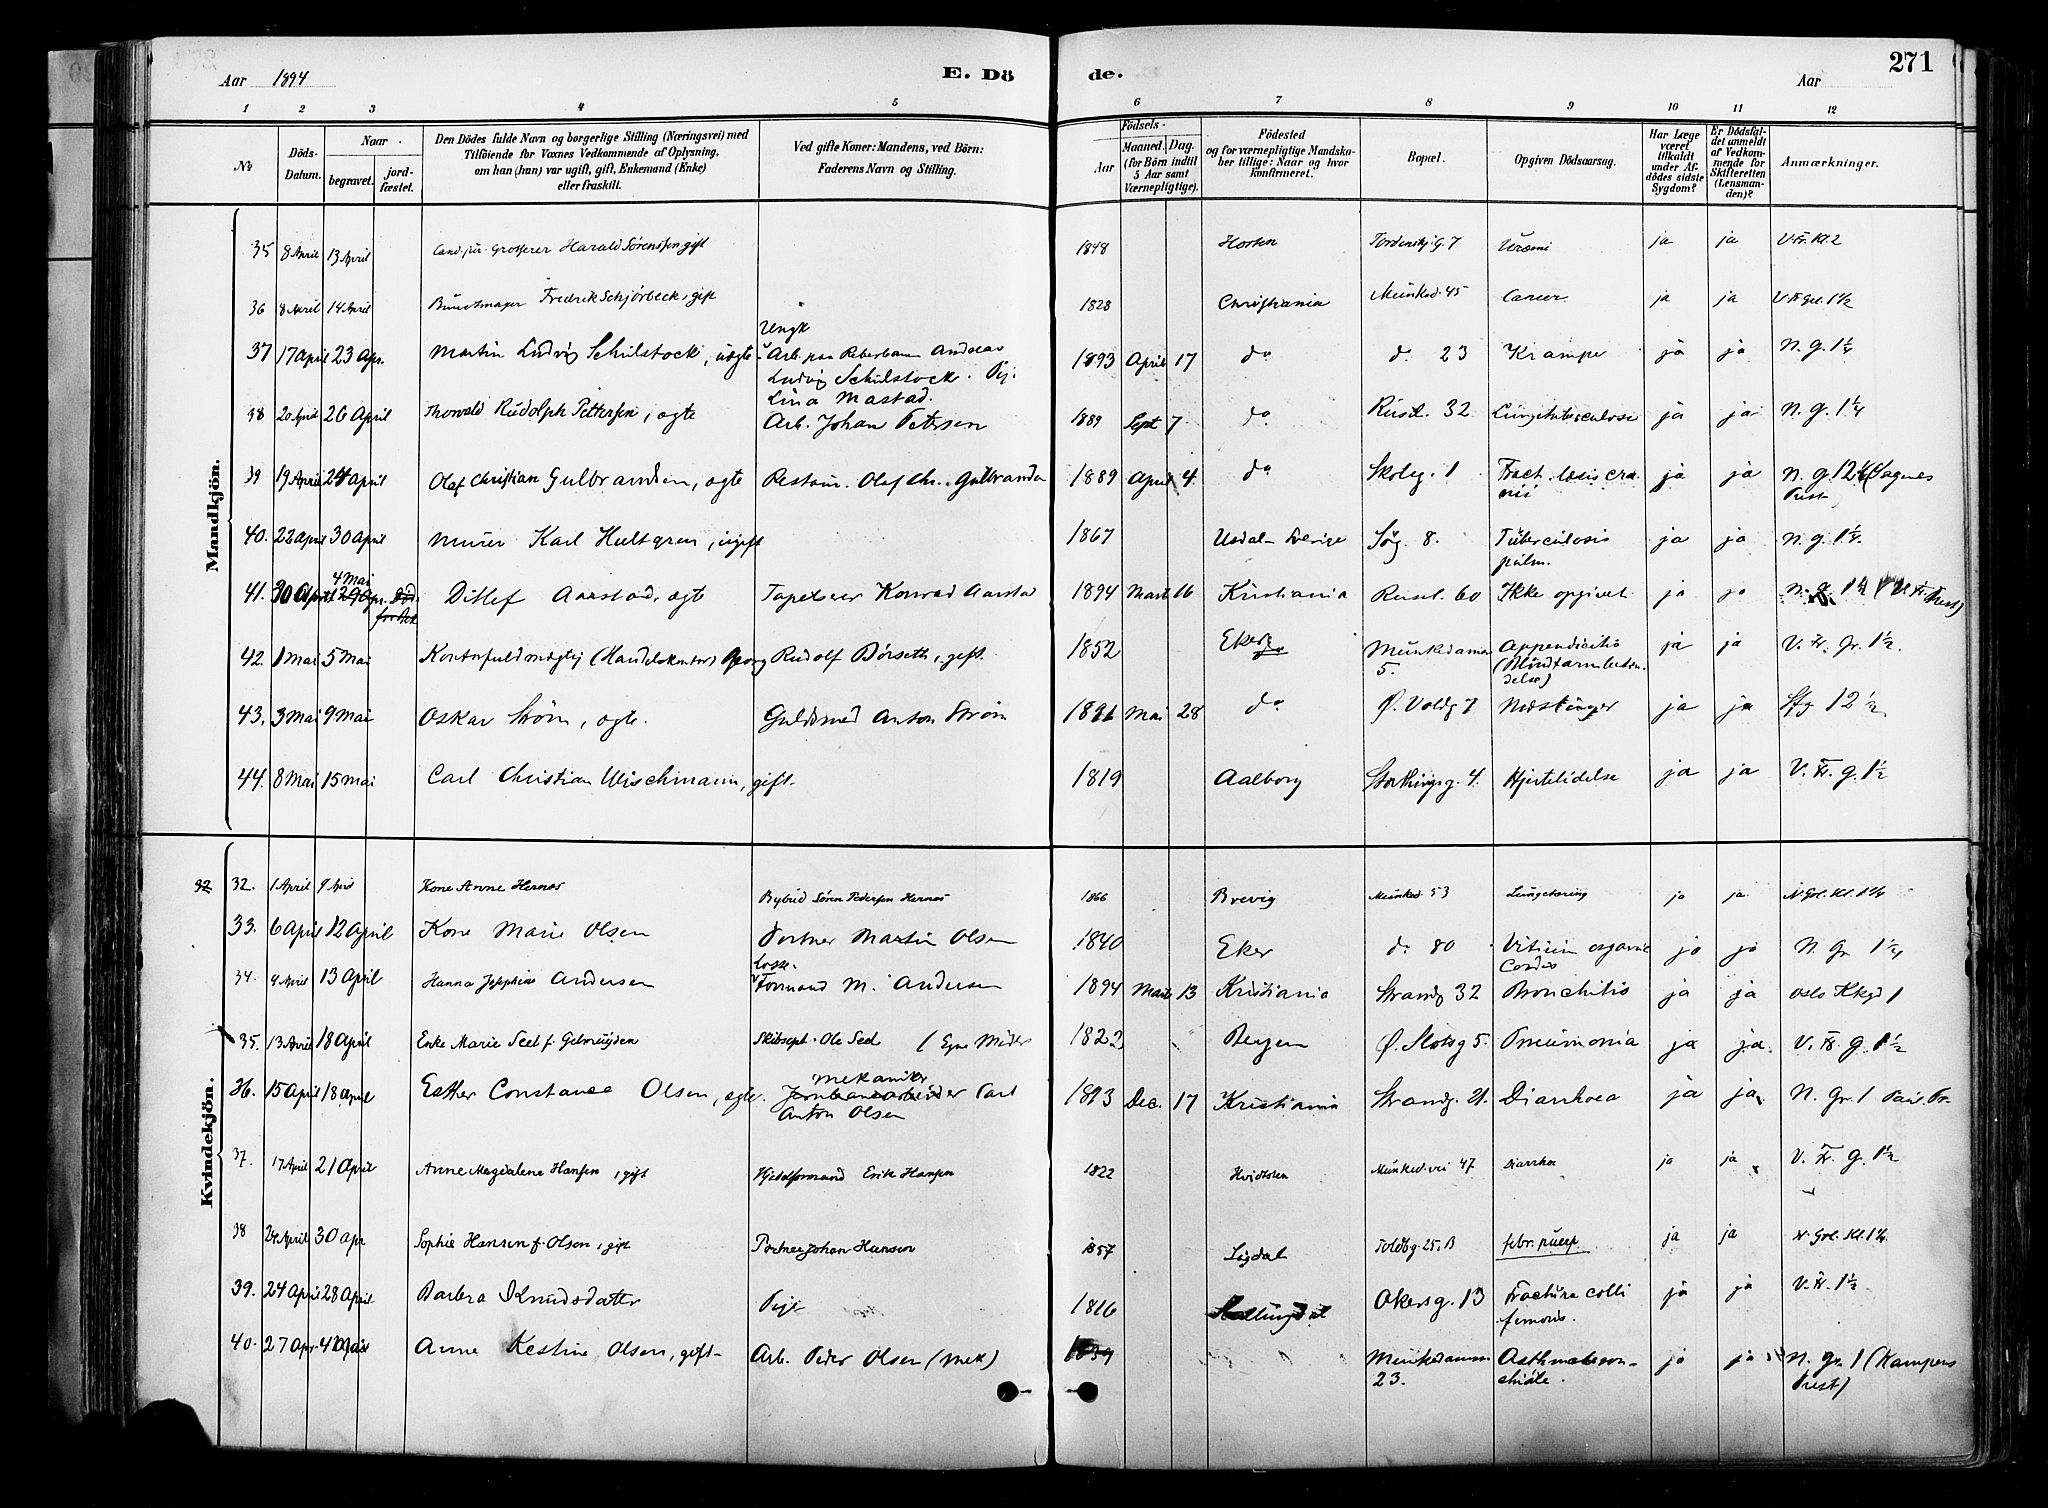 271
Aar 1894 E. Dö de. Aar
1 2 3 4 5 6 7 8 9 10 11 12
No
Döds-Datum.
Naar
begravet.
jord-fæstet.
Den Dödes fulde Navn og borgerlige Stilling (Næringsvei) med
Tilföiende for Voxnes Vedkommende af Oplysning,
om han (hun) var ugift, gift, Enkemand (Enke)
eller fraskilt.
Ved gifte Koner: Mandens, ved Börn:
Faderens Navn og Stilling.
Födsels-
Aar
Maaned. Dag.
(for Börn indtil
5 Aar samt
Værnepligtige).
Födested
og for værnepligtige Mandska-
ber tillige: Naar og hvor
konfirmeret.
Bopæl.
Opgiven Dödsaarsag.
Har Læge
været
tilkaldt
under Af-
dödes sidste
Sygdom?
Er Dödsfal-
det anmeldt
af Vedkom-
mende for
Skifteretten
(Lensman-
den)?
Anmærkninger.
Mandkjön.
35 8 April 13 April Cand jur. Grosserer Harald Sørenssen gift 1848 Horten Tordenskj. G. 7 Uræmi ja ja V. Fr. Kl. 2
36 8 April 14 April Buntmager Fredrik Schjørbeck, gift 1828 Christiania Munked. 45 Cancer ja ja V. Fr. Gr. 1 1/2
37 17 April 23 Apr. Martin Ludvig Schulstock, uægte Arb. paa Reberbanen Andreas 1893 April 17 do d. 23 Krampe ja ja N. G. 1 1/4
Ludvig Schulstock. Pige
Lina Mastad.
38 20 April 26 April Thorvald Rudolph Pettersen, ægte Arb. Johan Petersen 1889 Sept 7 do Rusel. 32 Lungetuberculose ja ja N. g. 1 1/4
39 19 April 24 April Olaf Christian Gulbrandsen, ægte Restaur. Olaf Chr. Gulbrandsen 1889 April 4 do Skoleg. 1 Fract. basis cra-
nii ja ja N. g. 12 1/4 (Sagenes
Prest)
40. 22 April 30 April Murer Karl Hultgren, ugift 1867 Usdal Sverige Søg. 8. Tuberculosis
pulm. ja ja N. g. 1 1/4.
41. 30 April 4 Mai Ditlef Aarstad, ægte Tapetserer Konrad Aarstad 1894 Marts 16 Kristiania Rusel. 60 Ikke opgivet ja ja N. g.
42. 1 Mai 5 Mai Kontorfuldmægtig (Handelskontor) Georg Rudolf Børseth, gift. 1852 Eker Munkedamsv
5. Appendicitis
(Blindtarmbetæn-
delse) ja ja V. Fr. Gr. 1 1/2.
43. 3 Mai 9 Mai Oskar Strøm, ægte. Guldsmed Anton Strøm Mai 28 do Ø. Voldg 7 Meslinger ja ja Sfg 12 1/2
44. 8 Mai 15 Mai Carl Christian Wischmann, gift. 1819 Aalborg Storthingsg. 4. Hjertelidelse ja ja V. Fr. g. 1 1/2
Kvindekjön.
32. 1 April 9 April Kone Anne Hernæs Bybud Søren Pedersen Hernæs 1866 Brevig Munked 53 Lungetæring ja ja. N. Grl. Kl. 1 1/4
33. 6 April 12 April Kone Marie Olsen Portner Martin Olsen 1840 Eker do 80 Vitium organic
Cordis ja ja N. Gr 1 1/4
34. 9 April 13 April Hanna Josephine Andersen Losse-
Formand M. Andersen 1894 Marts 13 Kristiania Strandg 32 Bronchitis ja ja Oslo Kkgd 1
35. 13 April 18 April Enke Marie Seel f. Gelmuyden Skibscapt. Ole Seel (Egne Midler 1822 Bergen Ø. Slotsg 5. Pneumonia ja ja. V. Fr. g. 1 1/2
36. 15 April 18 April Esther Constance Olsen, ægte. Mekaniker
Jernbanearbeider Carl
Anton Olsen 1893 Dec. 17 Kristiania Strandg. 21. Diarrhoea ja ja N. Gr. 1
37. 17 April 21 April Anne Magdalene Hansen, gift Hjedalformand Erik Hansen 1822 Hvidtsten Munked.vei 47 Diarrhoe ja ja V. Fr. g. 1 1/2
38 24 April 30 Apr Sophie Hansen f. Olsen, gift Portner Johan Hansen 1857 Sigdal Toldbg. 25. B febr. puerp. ja ja N. Grl. Kl. 1 1/4
39. 24 April 28 April Barbra Knudsdatter Pige 1816 Hallingdal Akersg. 13 Fractura colli
femoris. ja ja V. Fr. 1 1/2
40. 27 Apr. 4 Mai Anne Kestine Olsen, gift Arb. Peder Olsen (Mek) 1839 Munkedamsv
23. Asthma bron-
chiale. ja ja N. Gr. 1 (Kampens
Prest)